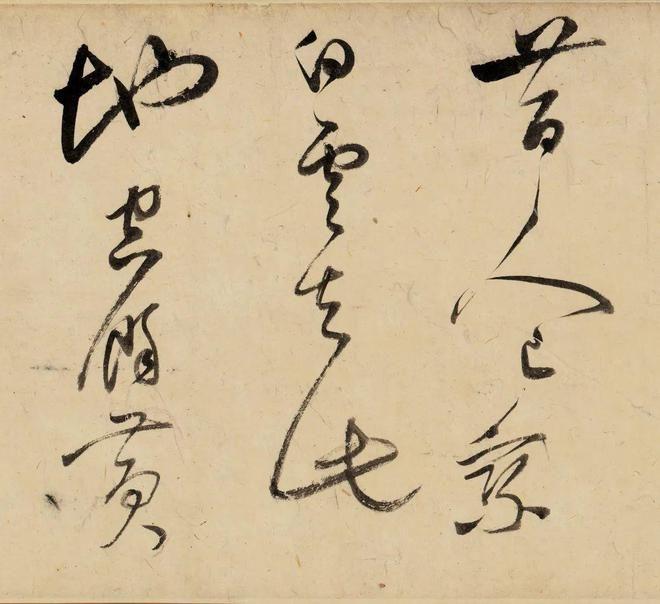 昔人已乘
白雲去此
地空餘黄